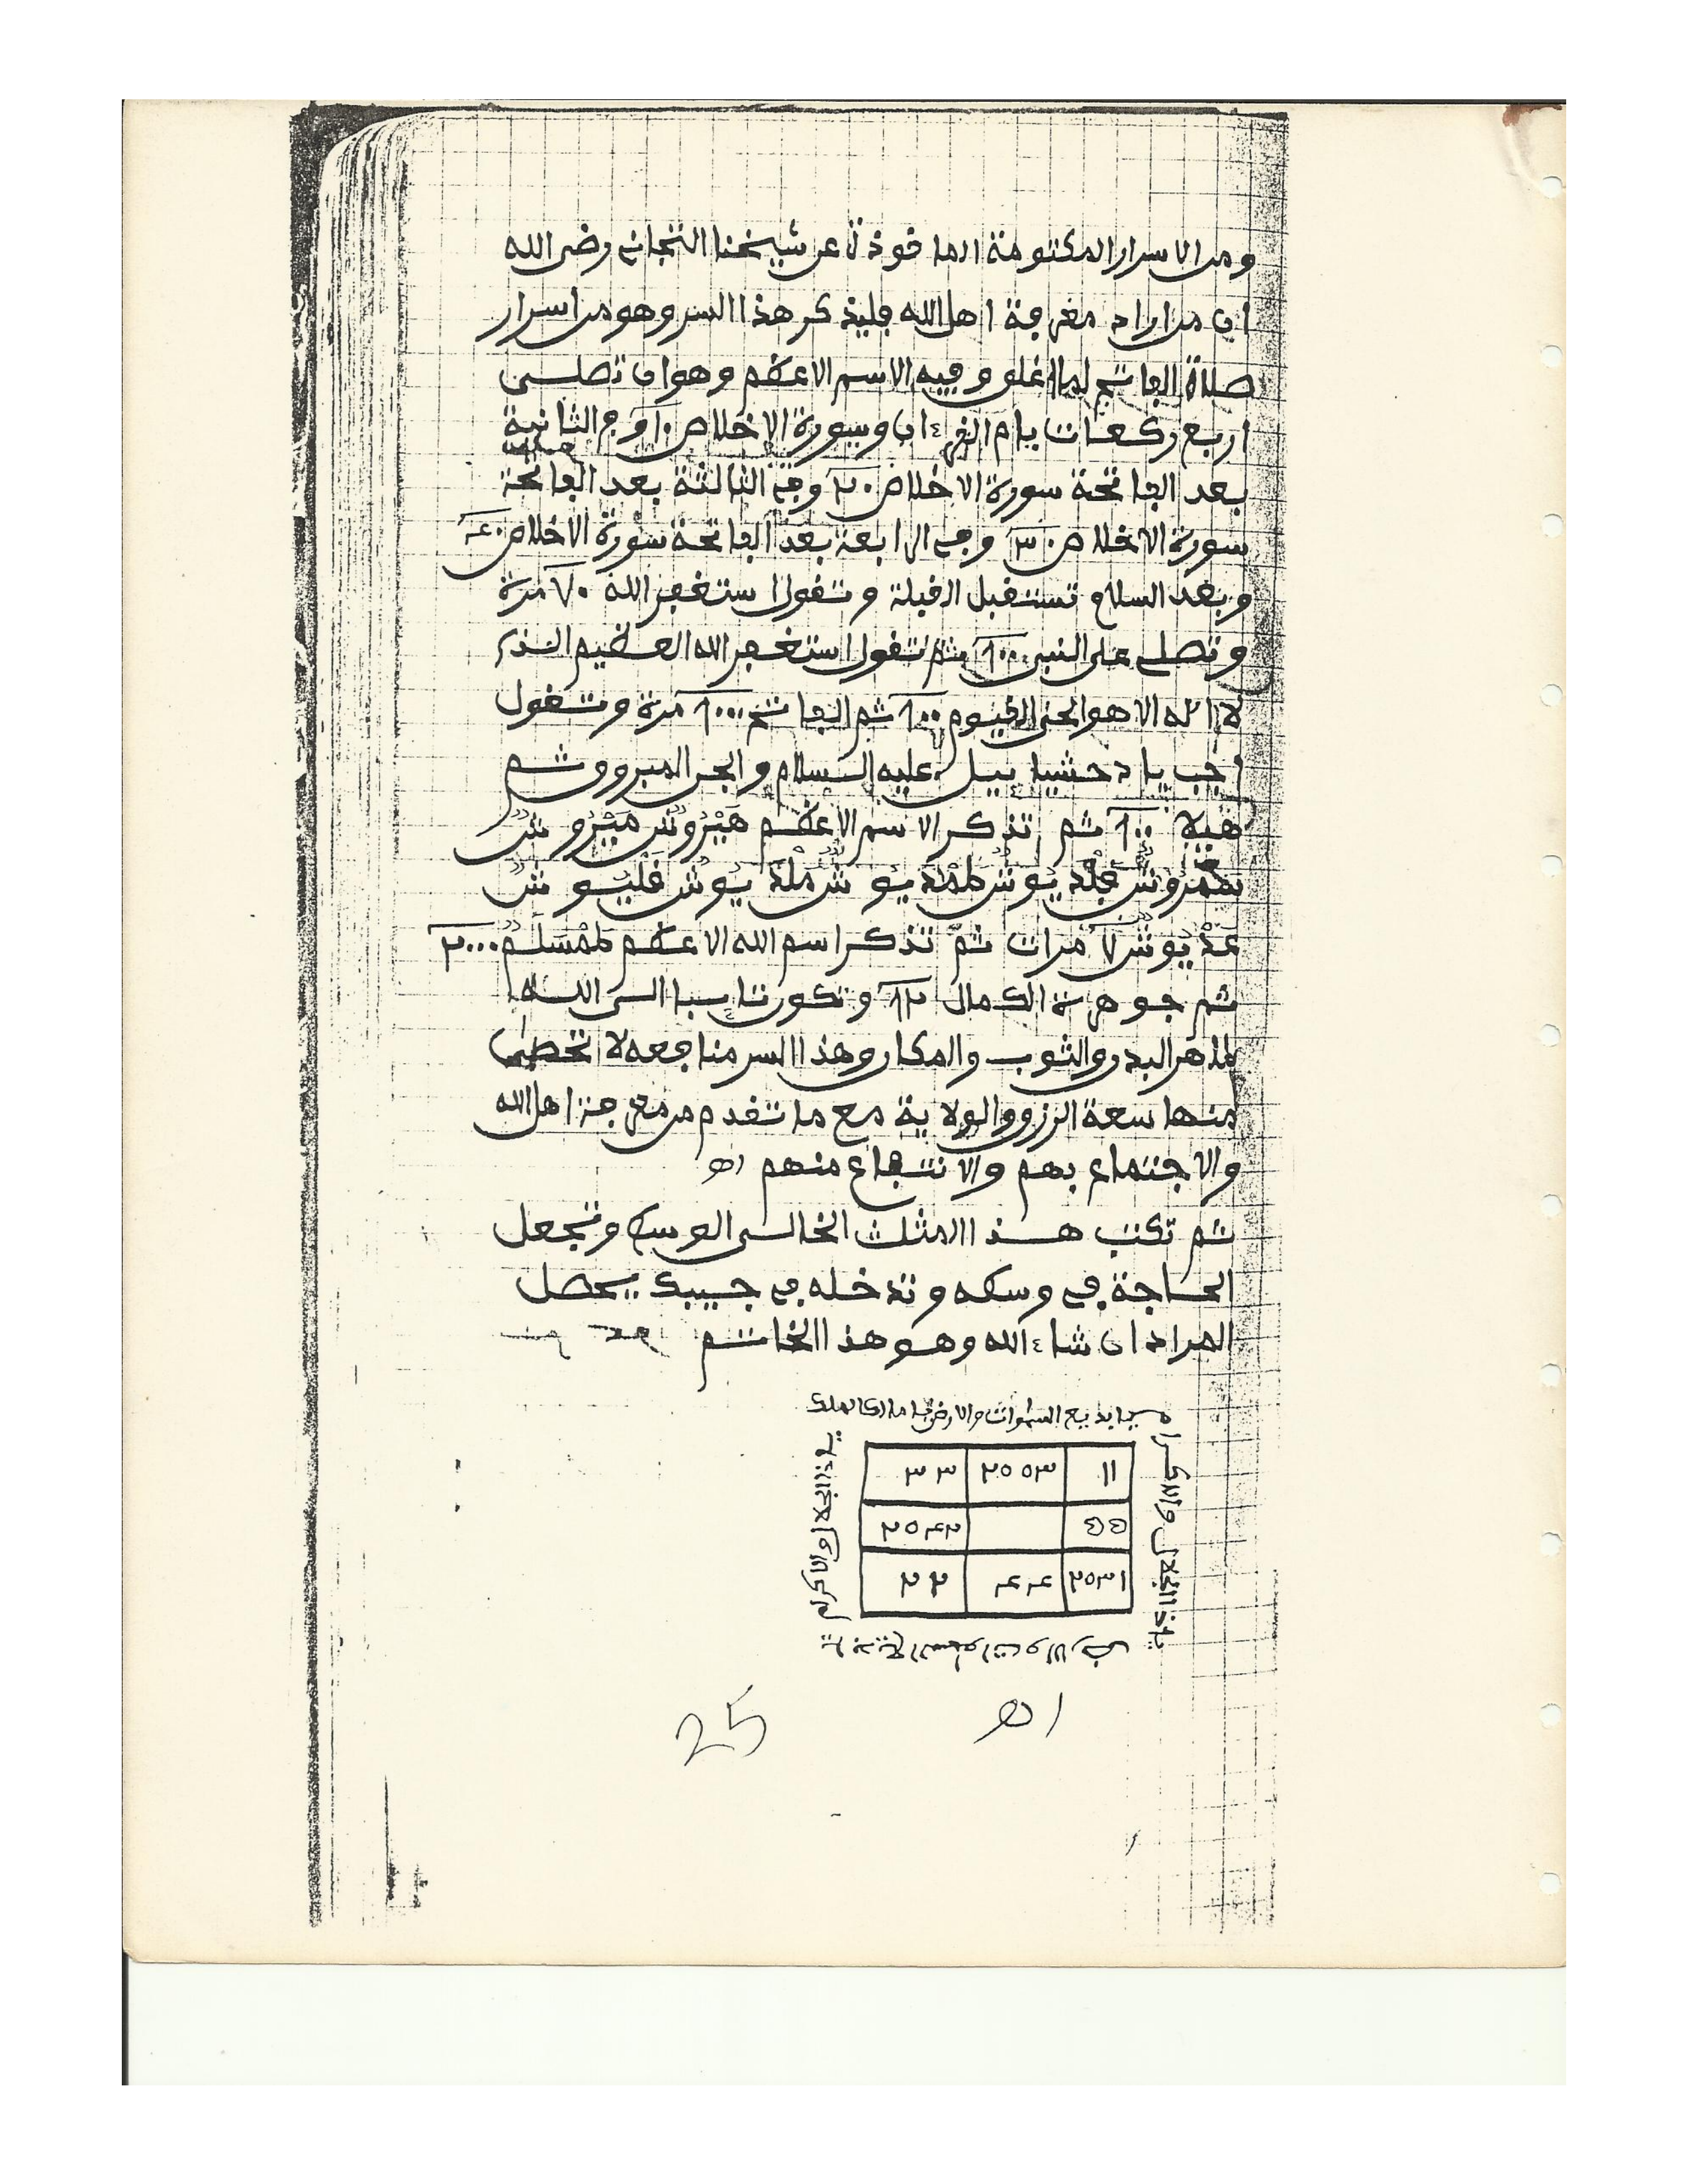 ومن الاسرار المكتومة الماخوذة عن شيخنا التجاني رضي الله
ان من اراد معرفة اهل الله فليذكر هذا السر وهو من اسرار
صلاة الفاتح لما اغلق وفيه الاسم الاعظم وهو ان تصلي
اربع ركعات بام القرءان وسورة الاخلاص ١٠ وفي الثانية
بعد الفاتحة سورة الاخلاص ٢٠ وفي الثالثة بعد الفاتحة
سورة الاخلاص ٣٠ وفي الرابعة بعد الفاتحة سورة الاخلاص ٤٠
وبعد السلام تستقبل القبلة وتقول استغفر الله ٧٠ مرة
وتصلي على النبي ١٠٠ ثم تقول استغفر الله العظيم الذي
لا اله الا هو الحي القيوم ١٠٠ ثم الفاتح ١٠٠٠ مرة وتقول
اجب يا دحشيا ييل عليه السلام والجن المبرووشم
هيلا ١٠٠ ثم تذكر الاسم الاعظم هيروش ميروش
يوش يوش يوش فليوش
عديوش ٧ مرات ثم تذكر اسم الله الاعظم طمسلم ٢٠٠٠
ثم جوهرة الكمال ١٢ وتكون تايبا الى الله
طاهر البدن والثوب والمكان وهذا السر منافعه لا تحصى
منها سعة الرزق والولاية مع ما تقدم من معرفة اهل الله
والاجتماع بهم والانتفاع منهم اهـ
ثم تكتب هذا المثلث الخالي الوسط وتجعل
الحاجة في وسطه وتدخله في جيبك يحصل
المراد ان شاء الله وهو هذا الخاتم
يا بديع السموات والارض يا مالك الملك
يا ذا الجلال والاكرام
٣٣ ٢٥٥٣ ١١
٢٥٤٢ ٥٥
٢٢ ٤٤ ٢٥٣١
يا ذا الجلال والاكرام
25 اهـ